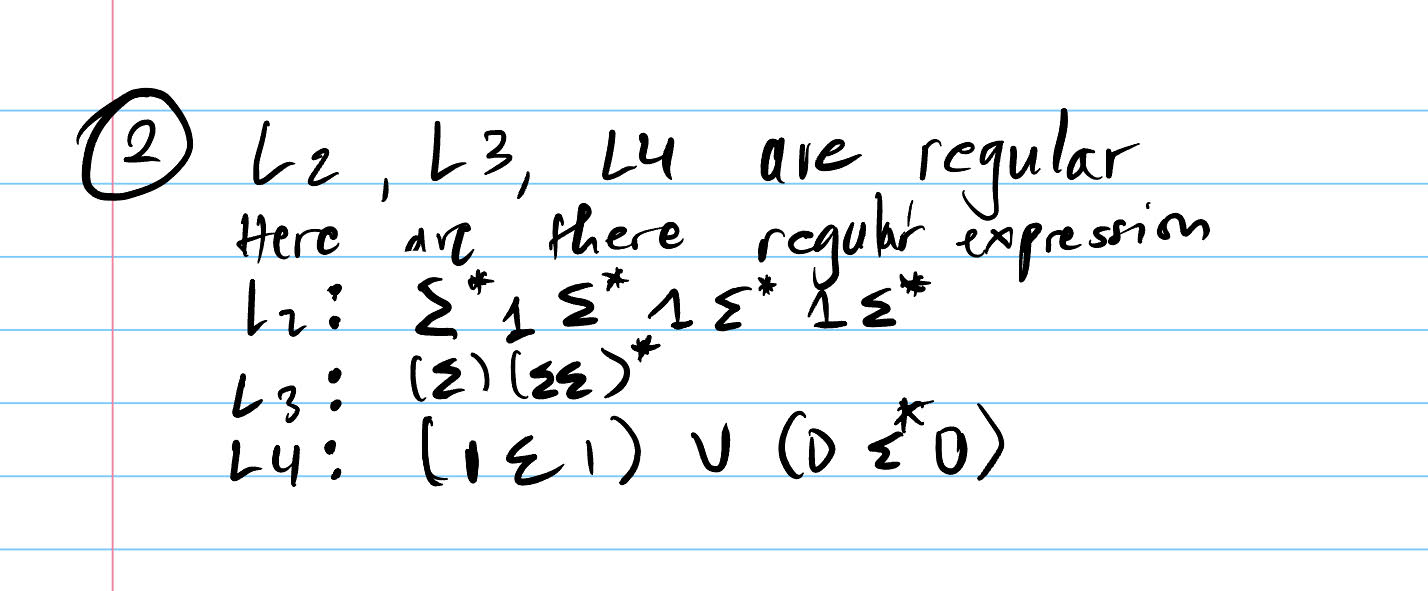 ② L2, L3, L4 are regular
Here are there regular expression
L2: Σ* 1 Σ* 1 Σ* 1 Σ*
L3: (Σ) (ΣΣ)*
L4: (1 Σ 1) ∪ (0 Σ* 0)